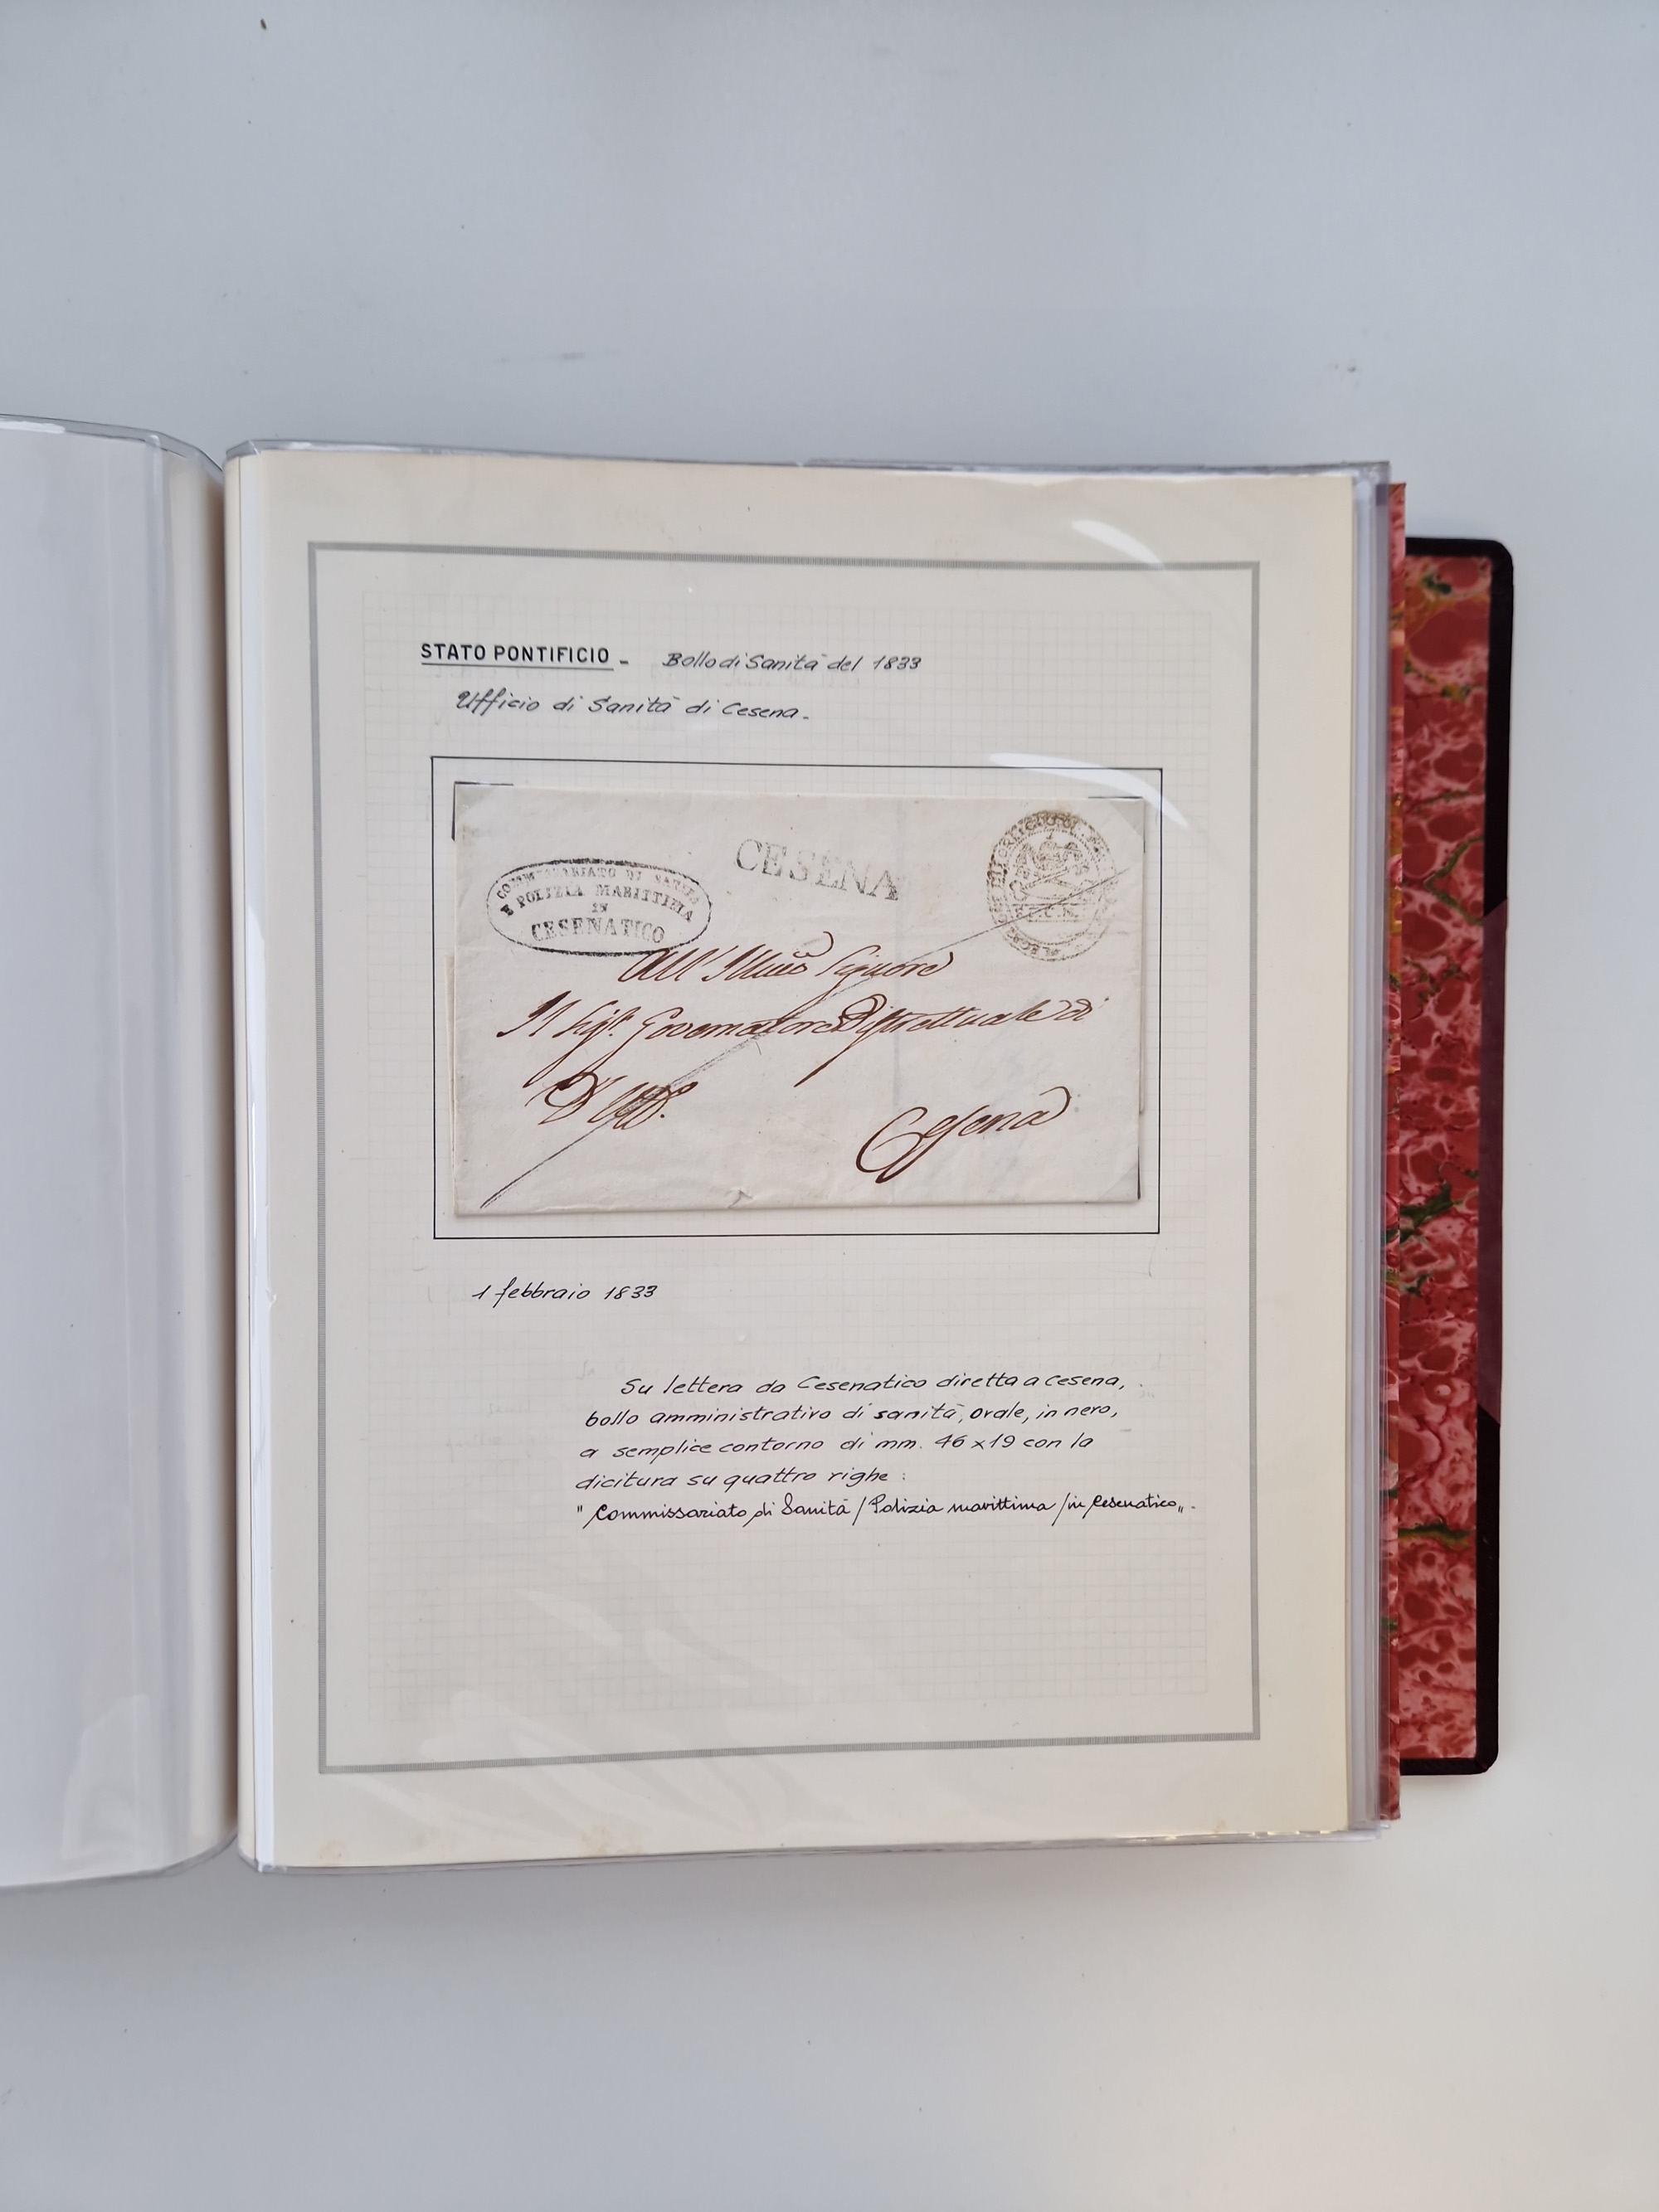 STATO PONTIFICIO - Bollo di Sanità del 1833
Ufficio di Sanità di Cesena.
CESENA
COMMISSARIATO DI SANITÀ
E POLIZIA MARITTIMA
IN
CESENATICO
All' Illmo Signore
Il Sigr. Governatore Distrettuale di
Cesena
1 febbraio 1833
Su lettera da Cesenatico diretta a Cesena,
bollo amministrativo di sanità, ovale, in nero,
a semplice contorno di mm. 46 x 19 con la
dicitura su quattro righe :
" Commissariato di Sanità / Polizia marittima / in Cesenatico„.